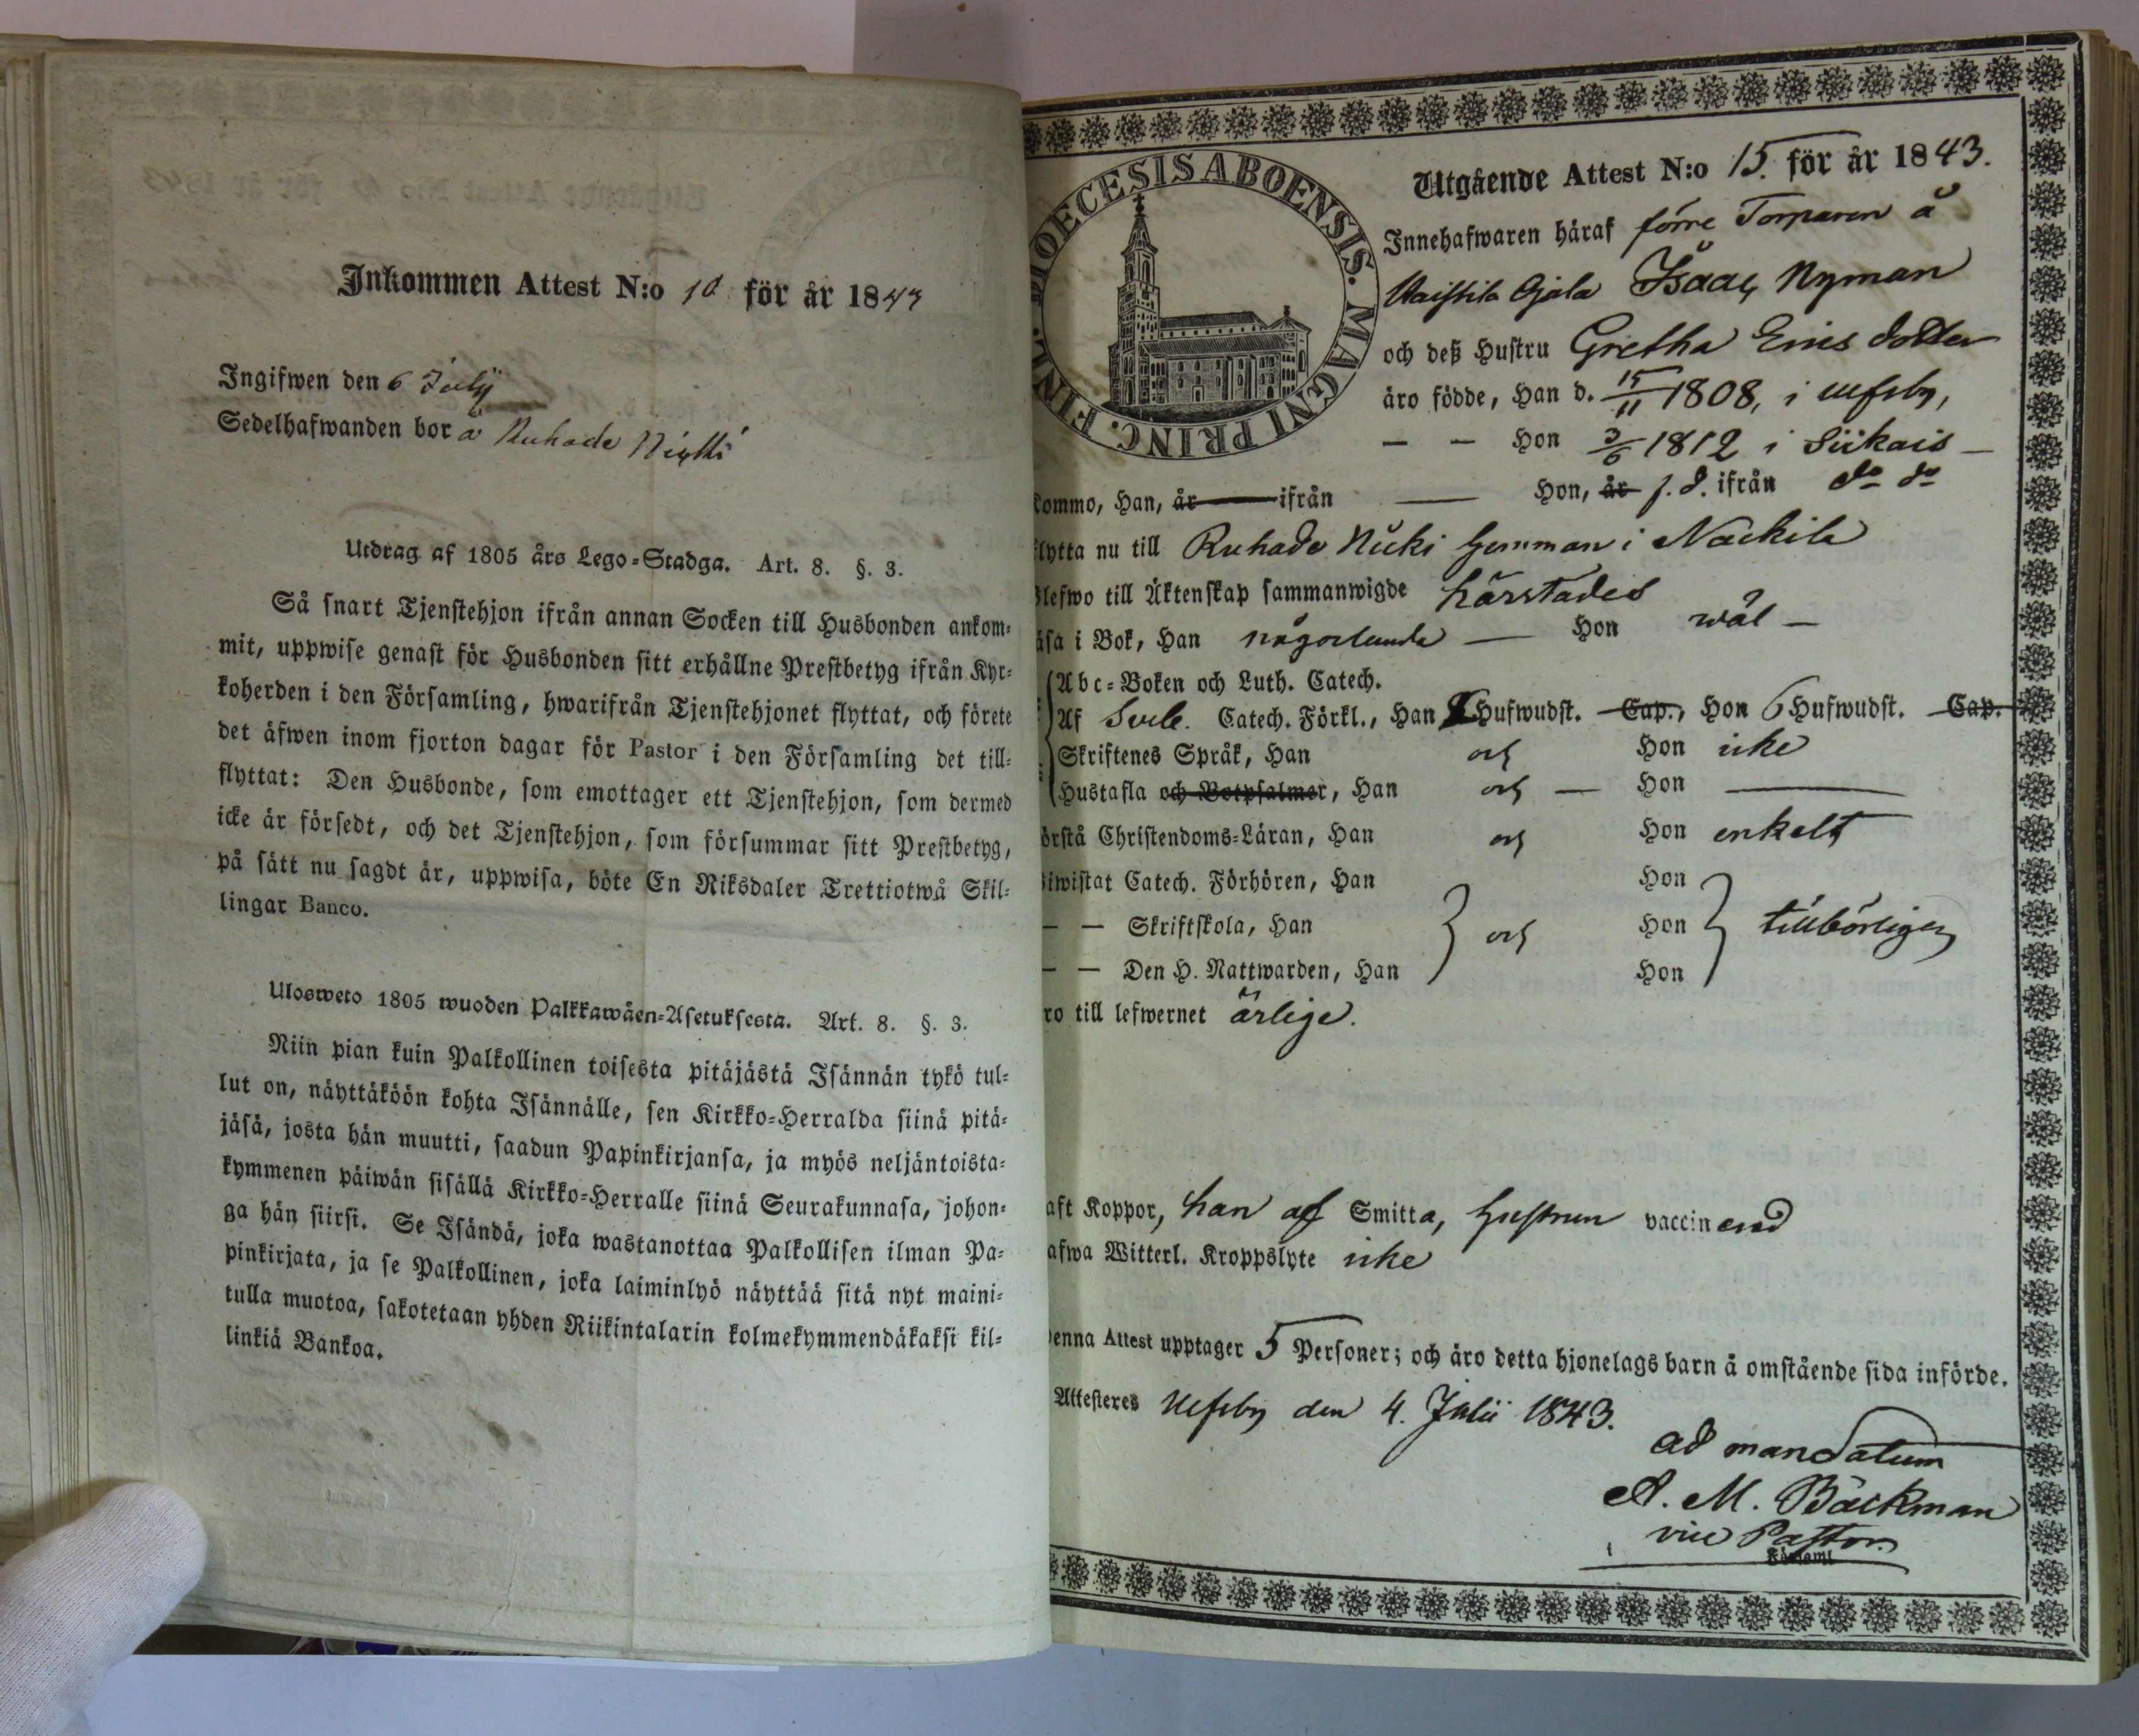 Inkommen Attest N:o 10 för år 1843
Ingifwen den 6 Julij
Sedelhafwanden bor å Ruhade
Utdrag af 1805 års Lego-Stadga. Art. 8. §. 3.
Så snart Tjenstehjon ifrån annan Socken till Husbonden ankom-
mit, uppwise genast för Husbonden sitt erhållne Prestbetyg ifrån Kyr-
koherden i den Församling, hwarifrån Tjenstehjonet flyttat, och förete
det äfwen inom fjorton dagar för Pastor i den Församling det till-
flyttat: Den Husbonde, som emottager ett Tjenstehjon, som dermed
icke är försedt, och det Tjenstehjon, som försummar sitt Prestbetyg,
på sätt nu sagdt är, uppwisa, böte En Riksdaler Trettiotwå Skil-
lingar Banco.
Ulosweto 1805 wuoden Palkkawäen-Asetuksesta. Art. 8. §. 3.
Niin pian kuin Palkollinen toisesta pitäjästä Isännän tykö tul-
lut on, näyttäköön kohta Isännälle, sen Kirkko-Herralda siinä pitä-
jäsä, josta hän muutti, saadun Papinkirjansa, ja myös neljäntoista-
kymmenen päiwän sisällä Kirkko-Herralle siinä Seurakunnasa, johon-
ga hän siirsi. Se Isändä, joka wastanottaa Palkollisen ilman Pa-
pinkirjata, ja se Palkollinen, joka laiminlyö näyttää sitä nyt maini-
tulla muotoa, sakotetaan yhden Riikintalarin kolmekymmendäkaksi kil-
linkiä Bankoa.
DIOECESIS ABOENSIS. MAGNI PRINC. FINL.
Utgående Attest N:o 15. för år 1843.
Innehafwaren häraf förre Torparen å
Gjala Isaac Nyman
och deß Hustru Gretha Ericsdotter
äro födde, Han d. 15/11 1808, i Ulfsby,
— — Hon 3/6 1812 i Siikais —
Kommo, Han, år — ifrån — Hon, år f. d. ifrån do do
flytta nu till Ruhade Nicki hemman i Nackila
Blefwo till Äktenskap sammanwigde härstädes
läsa i Bok, Han någorlunda — Hon wäl —
Abc-Boken och Luth. Catech.
Af Sveb. Catech. Förkl., Han Hufwudst. Cap., Hon 6 Hufwudst. Cap.
Skriftenes Språk, Han och Hon icke
Hustafla och Botpsalmer, Han och — Hon —
förstå Christendoms-Läran, Han och Hon enkelt
Biwistat Catech. Förhören, Han Hon
— — Skriftskola, Han och Hon tillbörligen
— — Den H. Nattwarden, Han Hon
äro till lefwernet ärlige.
haft Koppor, han af Smitta, hustrun vaccinerad
hafwa Witterl. Kroppslyte icke
Denna Attest upptager 5 Personer; och äro detta hjonelags barn å omstående sida införde.
Attesteres Ulfsby den 4. Julii 1843.
ad mandatum
A. M. Bäckman
vice Pastor.